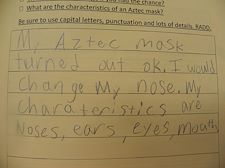 had the chance?
☐ What are the characteristics of an Aztec mask?
Be sure to use capital letters, punctuation and lots of details. RADD.
My Aztec mask
turned out ok. I would
change my nose. My
charateristics are
Noses, ears, eyes, mouth